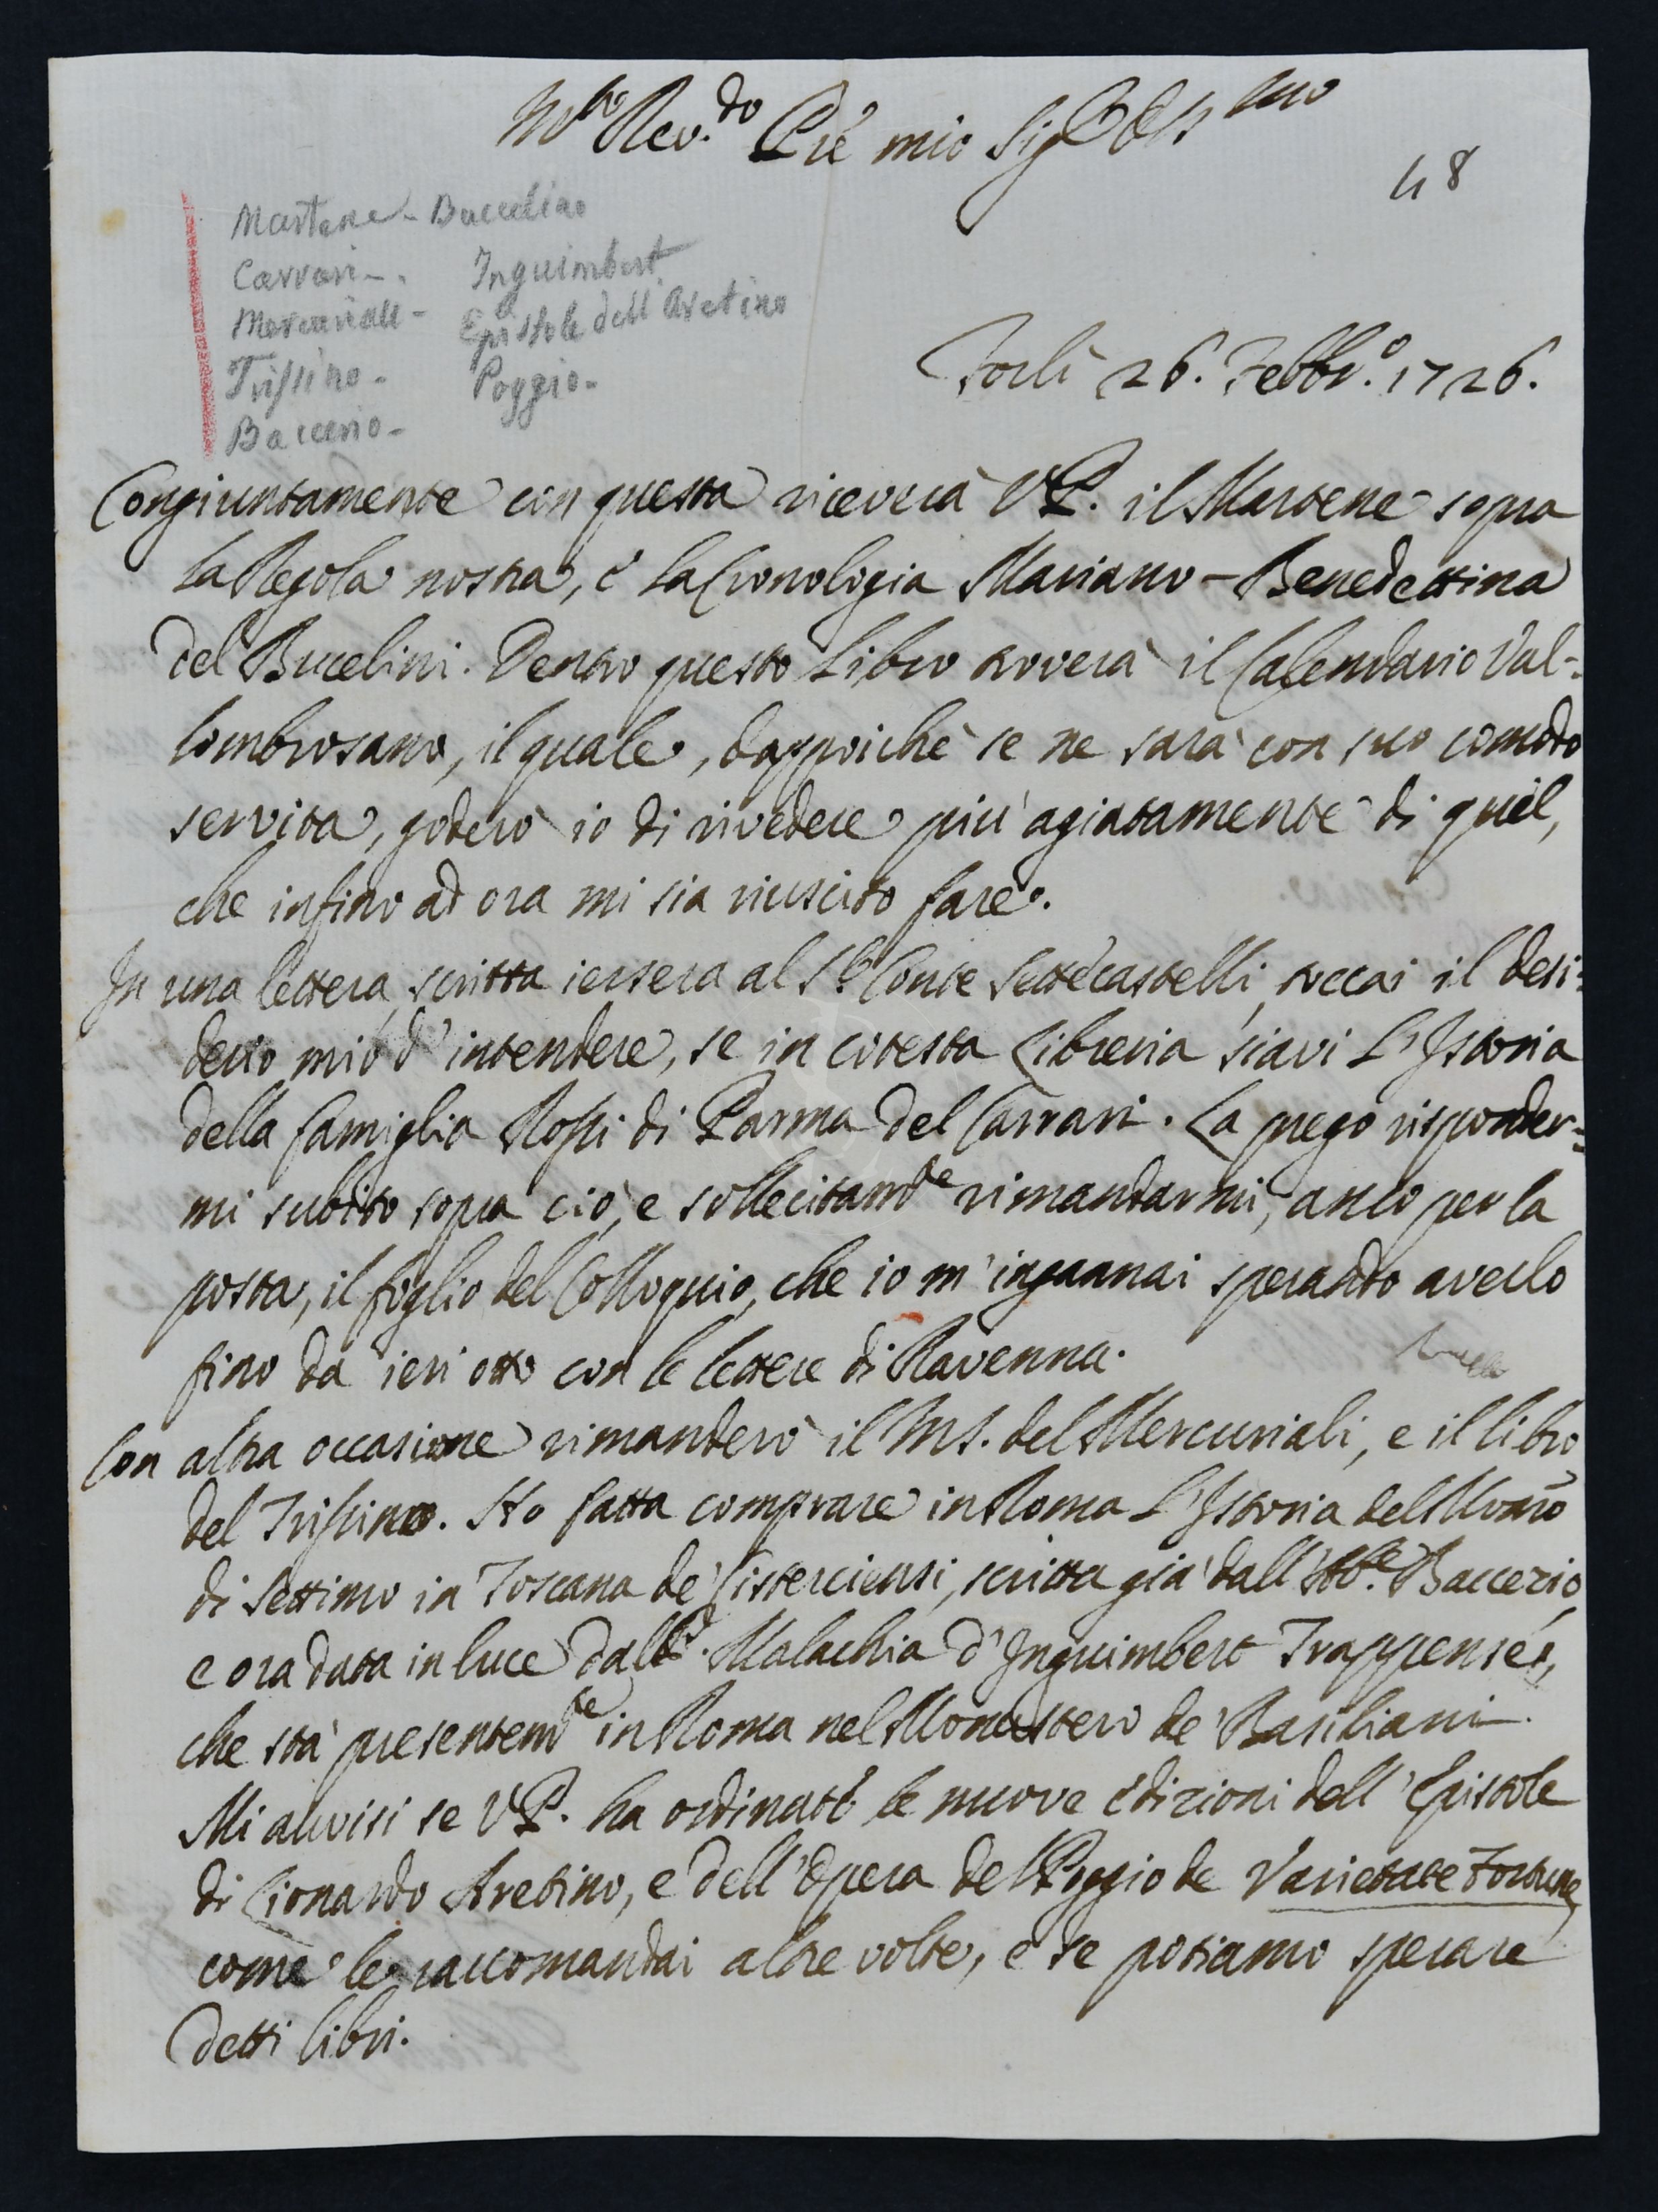 M.to Rev.do P.re mio Sig.r Oss.mo
48
Martene - Buccelino
Carrari - Inguimbert
Mercuriale - Epistole dell'Aretino
Trissino - Poggio -
Baccerio -
Forlì 26. Febbr.o 1726.
Congiuntamente con questa riceverà V.P. il Martene sopra
la Regola nostra, e la Cronologia Mariano-Benedettina
del Bucelini. Dentro questo Libro troverà il Calendario Val-
lombrosano, il quale, dappoichè se ne sarà con suo comodo
servita, goderò io di rivedere più agiatamente di quel,
che infino ad ora mi sia riuscito fare.
In una lettera, scritta iersera al S.r Conte Settecastelli, toccai il desi=
derio mio d'intendere, se in cotesta Libreria siavi L'Istoria
della famiglia Rossi di Parma del Carrari. La prego risponder=
mi subito sopra ciò, e sollecitam.te rimandarmi, anco per la
posta, il foglio del Colloquio, che io m'ingannai sperando averlo
fino da ieri otto con le lettere di Ravenna.
Con altra occasione rimanderò il MS. del Mercuriali, e il libro
del Trissino. Ho fatta comprare in Roma L'Istoria del Mon.ro
di Settimo in Toscana de' Cisterciensi, scritta già dall'Ab.e Baccerio,
e ora data in luce dal P. Malachia d'Inguimbert Trappense,
che stà presentem.te in Roma nel Monastero de' Basiliani.
Mi avvisi se V.P. ha ordinate le nuove edizioni dell'Epistole
di Lionardo Aretino, e dell'Opera del Poggio de Varietate Fortunę
come le raccomandai altre volte, e se possiamo sperare
detti libri.